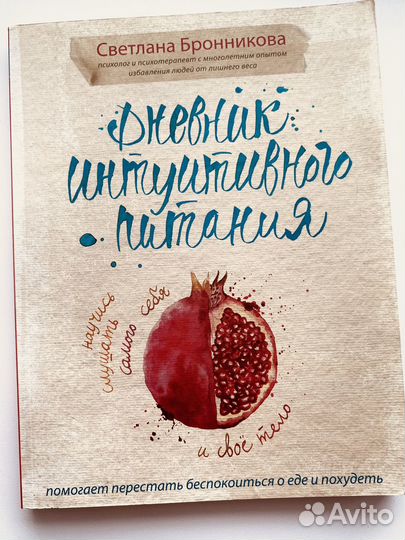 Светлана Бронникова
психолог и психотерапевт с многолетним опытом
избавления людей от лишнего веса
дневник
интуитивного
питания
научись
слушать
самого себя
и своё тело
помогает перестать беспокоиться о еде и похудеть
Avito